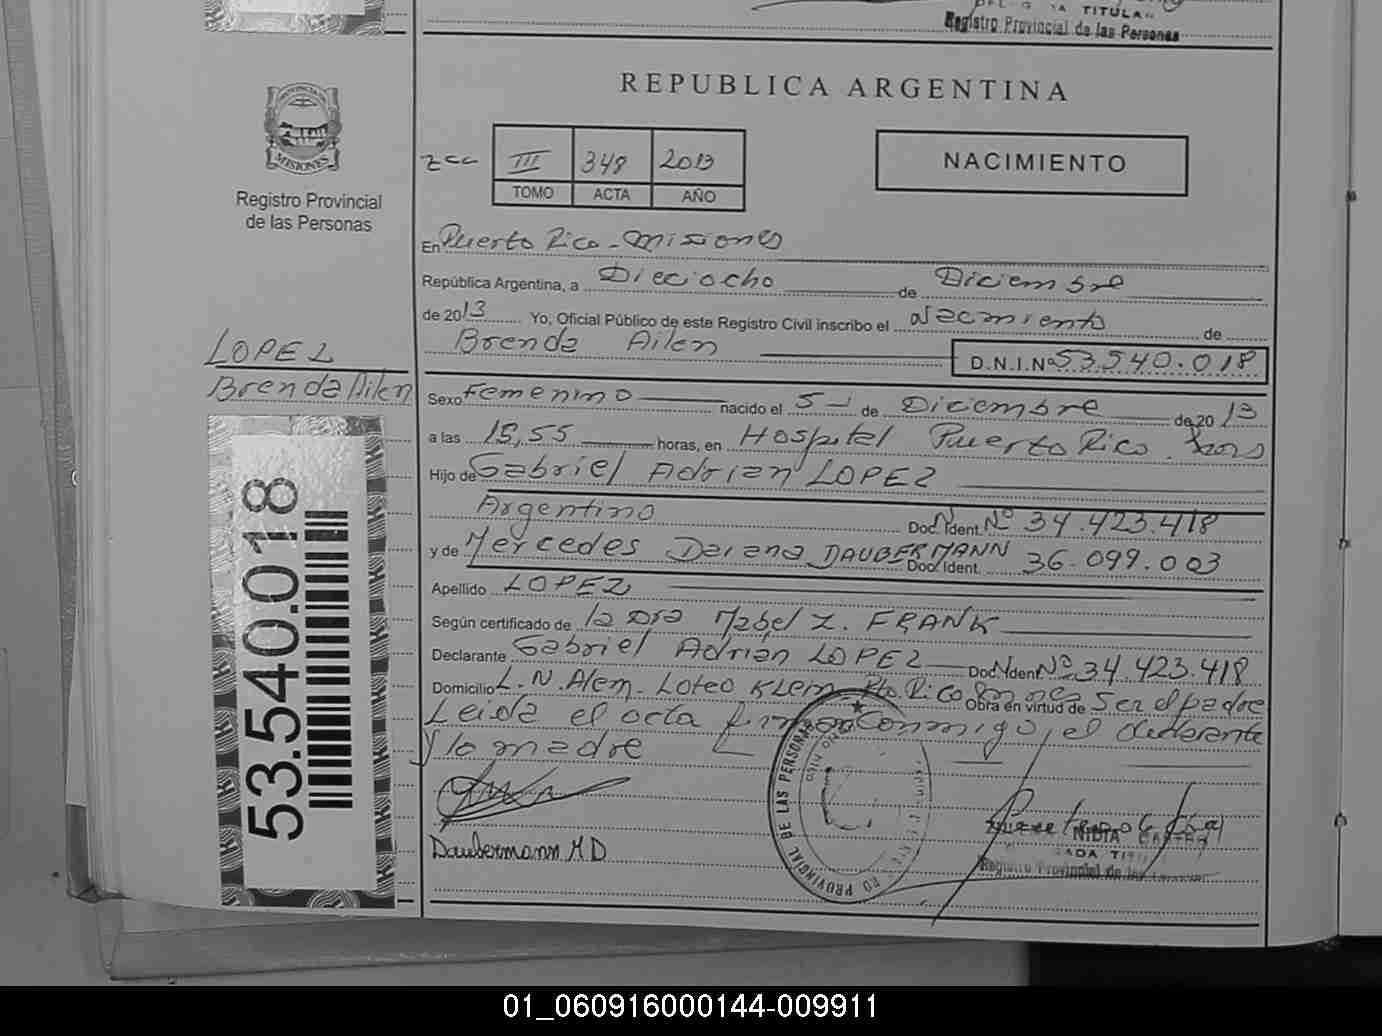 TITULAR
Registro Provincial de las Personas
REPUBLICA ARGENTINA
PROVINCIA DE
MISIONES
Registro Provincial
de las Personas
III 348 2013
TOMO ACTA AÑO
NACIMIENTO
En Puerto Rico - Misiones
República Argentina, a Dieciocho de Diciembre
de 2013 Yo, Oficial Público de este Registro Civil inscribo el Nacimiento de
Brenda Ailen D.N.I.Nº 53.540.018
LOPEZ
Brenda Ailen
Sexo Femenino nacido el 5 de Diciembre de 20 13
a las 15,55 horas, en Hospital Puerto Rico
Hijo de Gabriel Adrian LOPEZ
Argentino Doc. Ident. Nº 34.423.418
y de Mercedes Daiana DAUBERMANN Doc. Ident. 36.099.003
Apellido LOPEZ
Según certificado de la Dra Mabel Z. FRANK
Declarante Gabriel Adrián LOPEZ Doc. Ident Nº 34.423.418
Domicilio L.N.Alem - Loteo Klein Pto. Rico Obra en virtud de Ser el padre
Leida el acta firman Conmigo, el declarante
y la madre
53.540.018
Daubermann M D
PROVINCIAL DE LAS PERSONAS
NIDIA
Registro Provincial de las
01_060916000144-009911